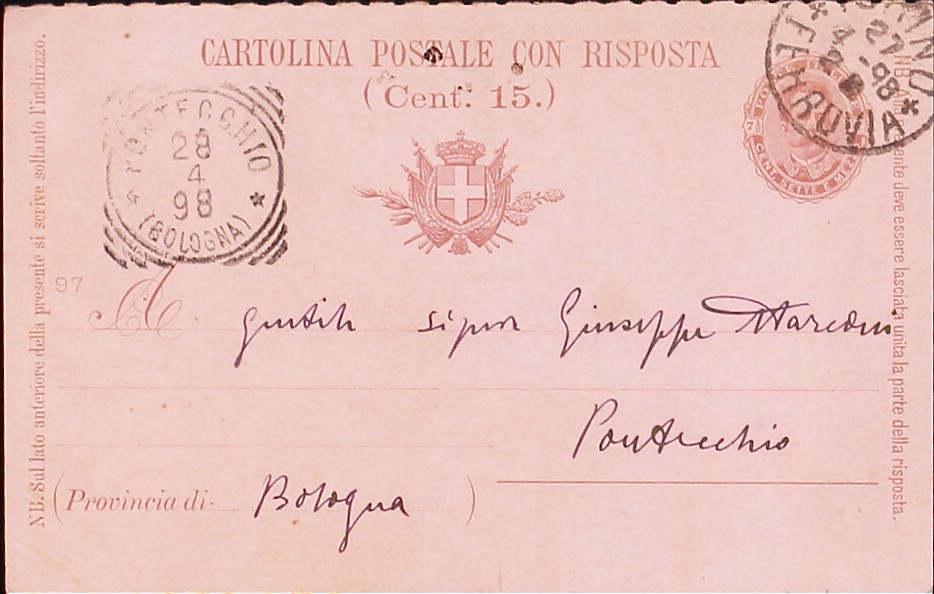 CARTOLINA POSTALE CON RISPOSTA
(Cent. 15.)
PONTECCHIO
28
4
98
(BOLOGNA)
27
4 -98
FERROVIA
7½
CENT. SETTE E MEZ
97
A
gentile signor Giuseppe Marconi
Pontecchio
(Provincia di Bologna)
NB. Sul lato anteriore della presente si scrive soltanto l'indirizzo.
NB
deve essere lasciata unita la parte della risposta.